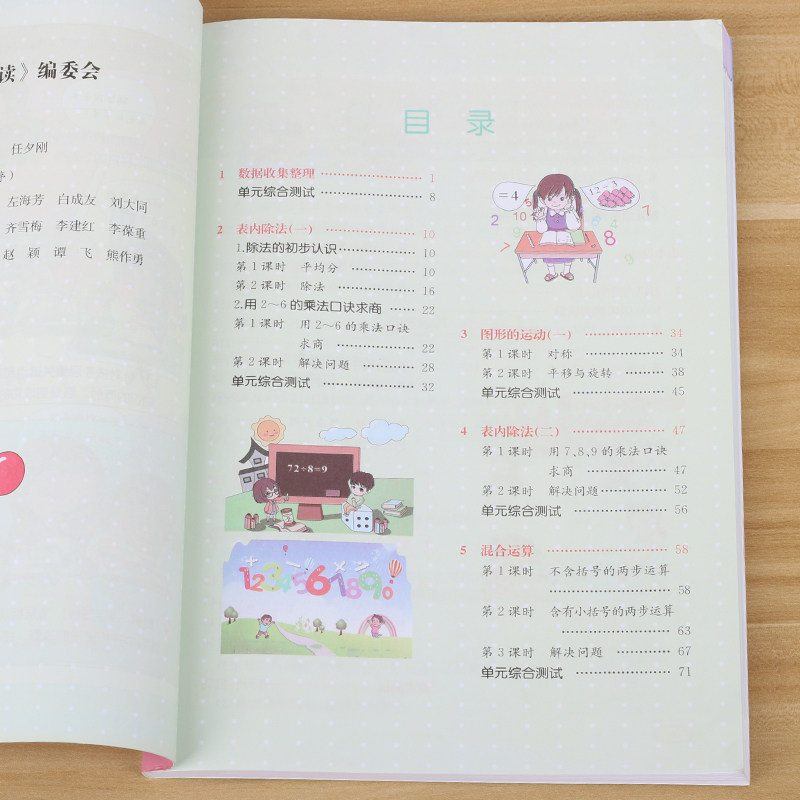 读》编委会
任夕刚
左海芳 白成友 刘大同
齐雪梅 李建红 李葆重
赵 颖 谭 飞 熊作勇
目 录
1 数据收集整理 ………………… 1
单元综合测试 ………………… 8
2 表内除法(一) ………………… 10
1.除法的初步认识 ………………… 10
第1课时 平均分 ………………… 10
第2课时 除法 ………………… 16
2.用2～6的乘法口诀求商 …… 22
第1课时 用2～6的乘法口诀
求商 ………………… 22
第2课时 解决问题 ………………… 28
单元综合测试 ………………… 32
72÷8=9
+ - × ÷
1234567890
=4
12÷3
2 5 10 6 7 7 8
3 图形的运动(一) ………………… 34
第1课时 对称 ………………… 34
第2课时 平移与旋转 ………… 38
单元综合测试 ………………… 45
4 表内除法(二) ………………… 47
第1课时 用7,8,9的乘法口诀
求商 ………………… 47
第2课时 解决问题 ………………… 52
单元综合测试 ………………… 56
5 混合运算 ………………… 58
第1课时 不含括号的两步运算
………………… 58
第2课时 含有小括号的两步运算
………………… 63
第3课时 解决问题 ………… 67
单元综合测试 ………………… 71